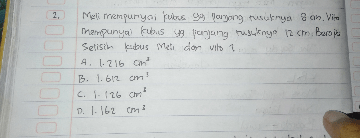 2. Meli mempunyai kubus yg panjang rusuknya 8 cm, Vito
mempunyai kubus yg panjang rusuknya 12 cm, Berapa
Selisih kubus Meli dan vito ?
A. 1.216 cm³
B. 1.612 cm³
C. 1.126 cm³
D. 1.162 cm³